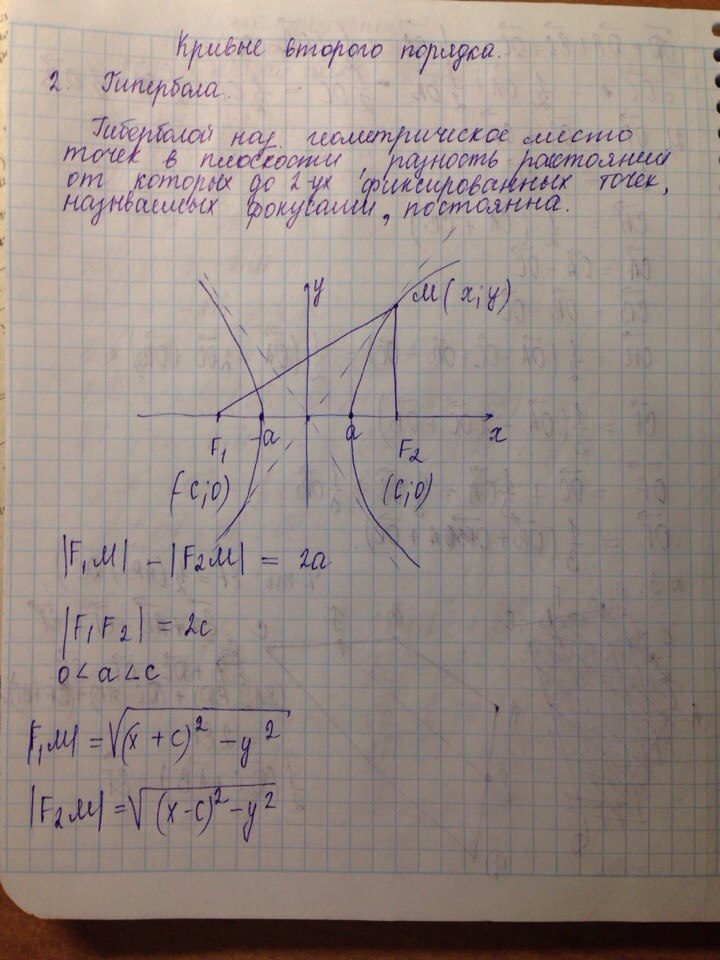 Кривые второго порядка.
2. Гипербола.
Гиберболой наз. геометрическое место
точек в плоскости, разность расстояний
от которых до 2-ух фиксированных точек,
называемых фокусами, постоянна.
y
M(x;y)
-a
a
x
F₁
F₂
(-c;0)
(c;0)
|F₁M| - |F₂M| = 2a
|F₁F₂| = 2c
0 < a < c
|F₁M| = √(x + c)² - y²
|F₂M| = √(x - c)² - y²